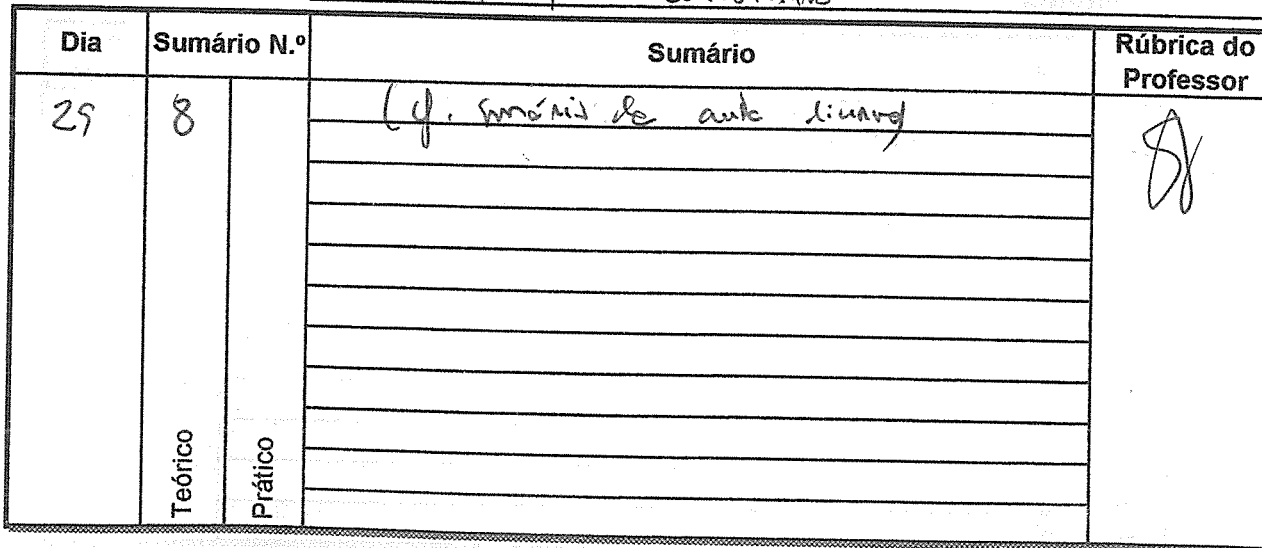 Dia Sumário N.º Sumário Rúbrica do Professor
29 8 (cf. sumário da aula
Teórico Prático